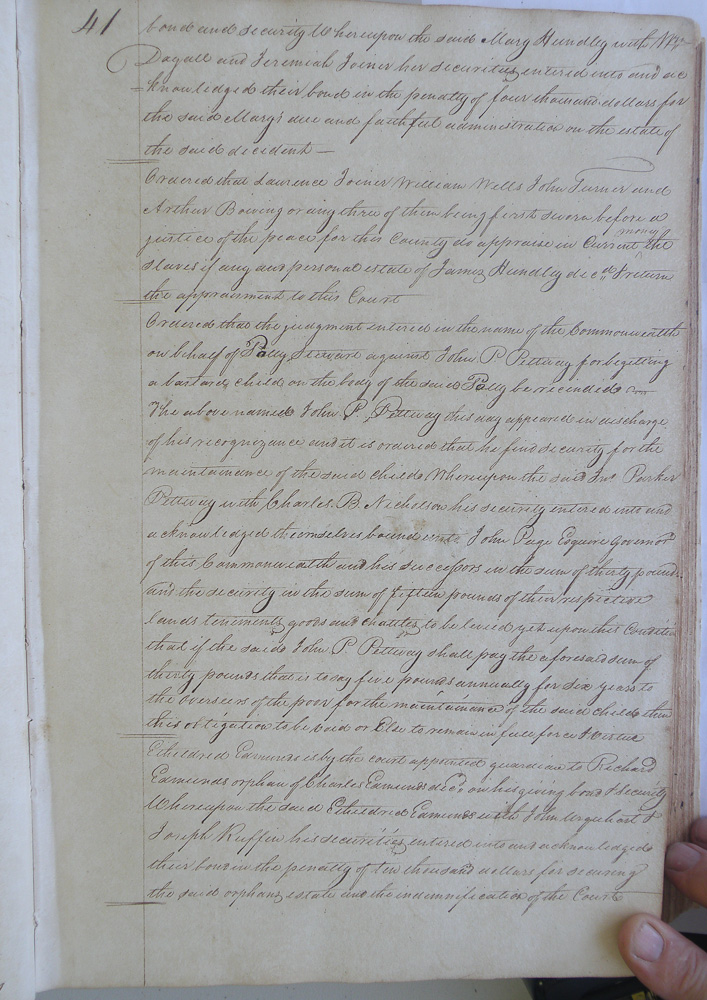 41
bond and security Whereupon the said Mary Hundley with
Dagall and Jeremiah Joiner her securities entered into and ac
knowledged their bond in the penalty of four thousand dollars for
the said Mary's due and faithful administration on the estate of
the said decedent —
Ordered that Laurence Joiner William Wells John Turner and
Arthur Bowing or any three of them being first sworn before a
justice of the peace for this County do appraise in Current money the
slaves if any and personal estate of James Hundley decd. & return
the appraisment to this Court
Ordered that the judgment entered in the name of the Commonwealth
on behalf of Polly Steward against John P. Pettway for begetting
a bastard child on the body of the said Polly be recinded
The above named John P. Pettway this day appeared in discharge
of his recognizance and it is ordered that he find security for the
maintainance of the said child Whereupon the said Jno. Parker
Pettway with Charles B. Nicholson his security entered into and
acknowledged themselves bound unto John Page Esquire Governor
of this Commonwealth and his successors in the sum of thirty pounds
and the security in the sum of fifteen pounds of their respective
lands tenements goods and chattles to be levied yet upon this Condition
that if the said John P Pettway shall pay the aforesaid sum of
thirty pounds that is to say five pounds annually for six years to
the overseers of the poor for the maintainance of the said child then
this obligation to be void or Else to remain in full force & virtue
Etheldred Edmunds is by the court appointed guardian to Richard
Edmunds orphan of Charles Edmunds decd. on his giving bond & security
Whereupon the said Etheldred Edmunds with John Urquhart &
Joseph Ruffin his securities entered into and acknowledged
their bond in the penalty of ten thousand dollars for securing
the said orphans estate and the indemnification of the Court